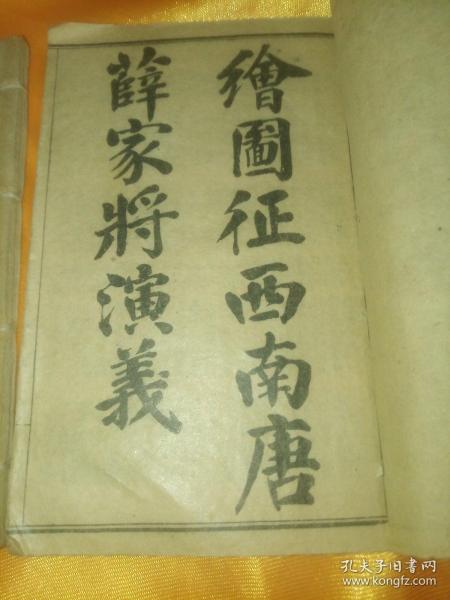 繪圖征西南唐
薛家將演義
孔夫子旧书网
www.kongfz.com